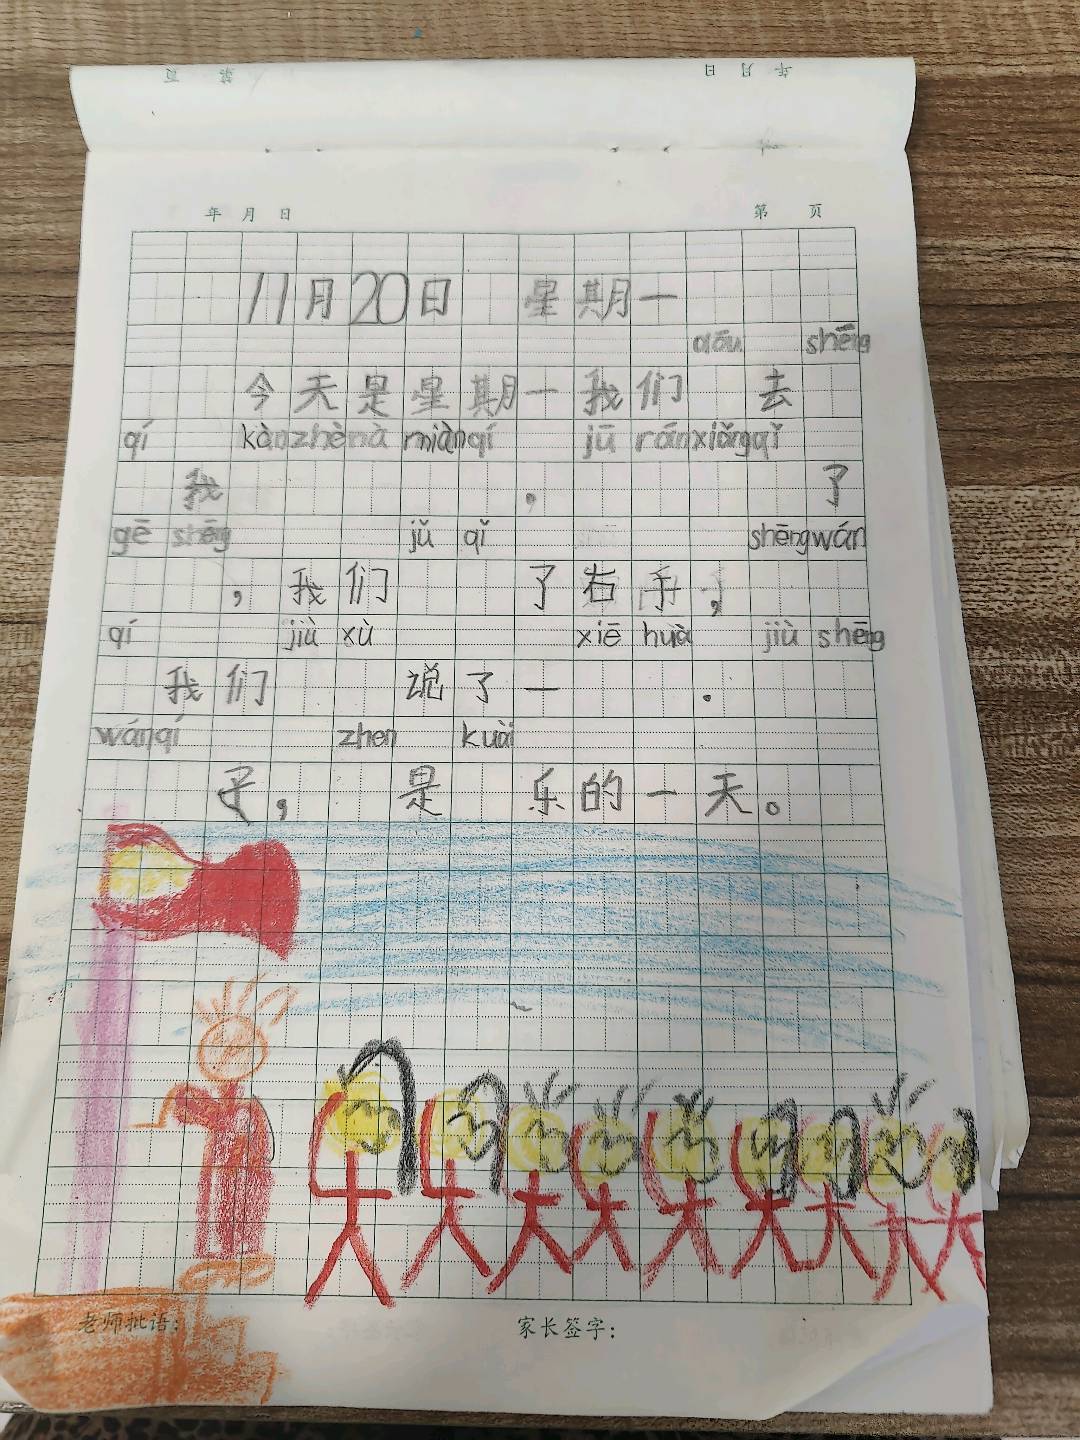 年 月 日 第 页
11月20日 星期一
qāu shēng
今天是星期一我们 去
qí kàn zhè nà miàn qí jū rán xiǎng qǐ
我 , 了
gē shēng jǔ qǐ shēng wán
, 我们 了右手,
qí jiù xù xiē huà jiù shēng
我们 说了一 .
wán qí zhen kuài
子, 是 乐的一天。
老师批语: 家长签字: